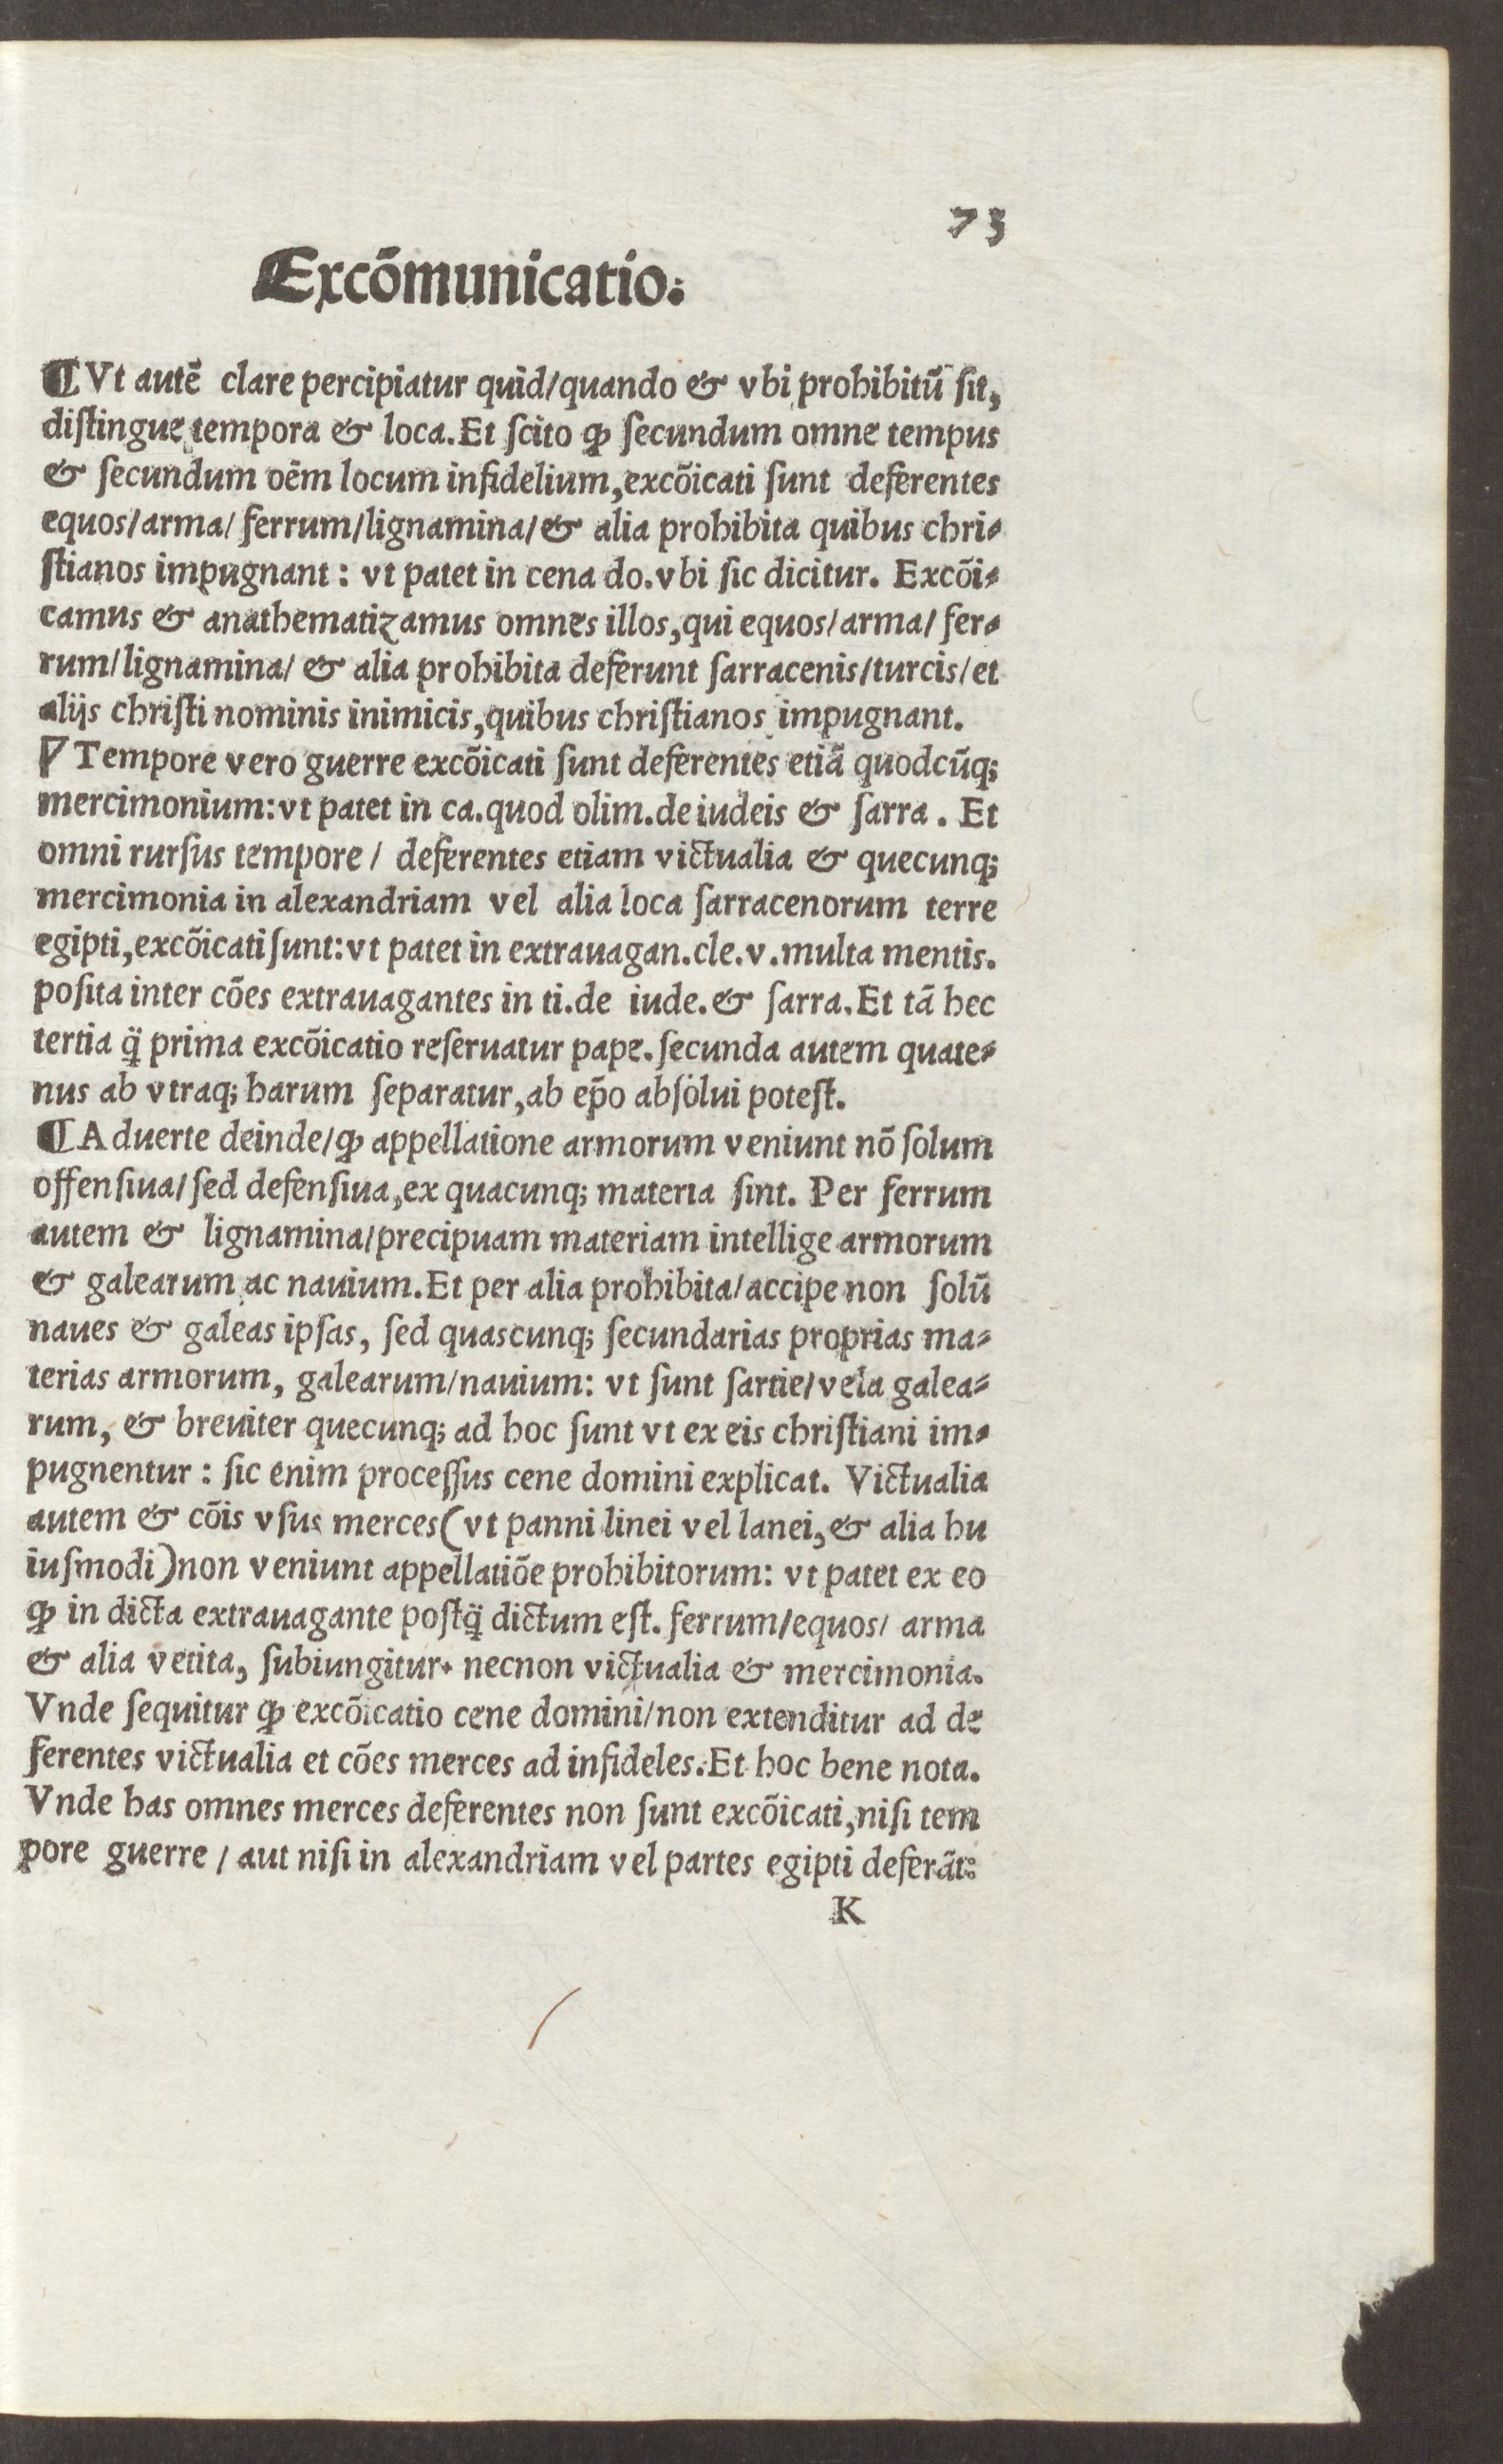 73
Excōmunicatio.
¶ Vt autē clare percipiatur quid/quando & vbi prohibitū sit,
distingue tempora & loca. Et scito ꝙ secundum omne tempus
& secundum oēm locum infidelium, excōicati sunt deferentes
equos/arma/ ferrum/lignamina/& alia prohibita quibus chri-
stianos impugnant: vt patet in cena do. vbi sic dicitur. Excōi-
camus & anathematizamus omnes illos, qui equos/arma/ fer-
rum/lignamina/ & alia prohibita deferunt sarracenis/turcis/et
alijs christi nominis inimicis, quibus christianos impugnant.
∇ Tempore vero guerre excōicati sunt deferentes etiā quodcūq;
mercimonium: vt patet in ca. quod olim. de iudeis & sarra. Et
omni rursus tempore / deferentes etiam victualia & quecunq;
mercimonia in alexandriam vel alia loca sarracenorum terre
egipti, excōicati sunt: vt patet in extrauagan. cle. v. multa mentis.
posita inter cōes extrauagantes in ti. de iude. & sarra. Et tā hec
tertia q̄̈ prima excōicatio reseruatur pape. secunda autem quate-
nus ab vtraq; harum separatur, ab ep̄o absolui potest.
¶ Aduerte deinde/ꝙ appellatione armorum veniunt nō solum
offensiua/sed defensiua, ex quacunq; materia sint. Per ferrum
autem & lignamina/precipuam materiam intellige armorum
& galearum ac nauium. Et per alia prohibita/accipe non solū
naues & galeas ipsas, sed quascunq; secundarias proprias ma-
terias armorum, galearum/nauium: vt sunt sartie/vela galea-
rum, & breuiter quecunq; ad hoc sunt vt ex eis christiani im-
pugnentur: sic enim processus cene domini explicat. Victualia
autem & cōis vsus merces (vt panni linei vel lanei, & alia hu
iusmodi) non veniunt appellatiōe prohibitorum: vt patet ex eo
ꝙ in dicta extrauagante postq̄̈ dictum est. ferrum/equos/ arma
& alia vetita, subiungitur. necnon victualia & mercimonia.
Vnde sequitur ꝙ excōicatio cene domini/non extenditur ad de
ferentes victualia et cōes merces ad infideles. Et hoc bene nota.
Vnde has omnes merces deferentes non sunt excōicati, nisi tem
pore guerre / aut nisi in alexandriam vel partes egipti deferāt:
K